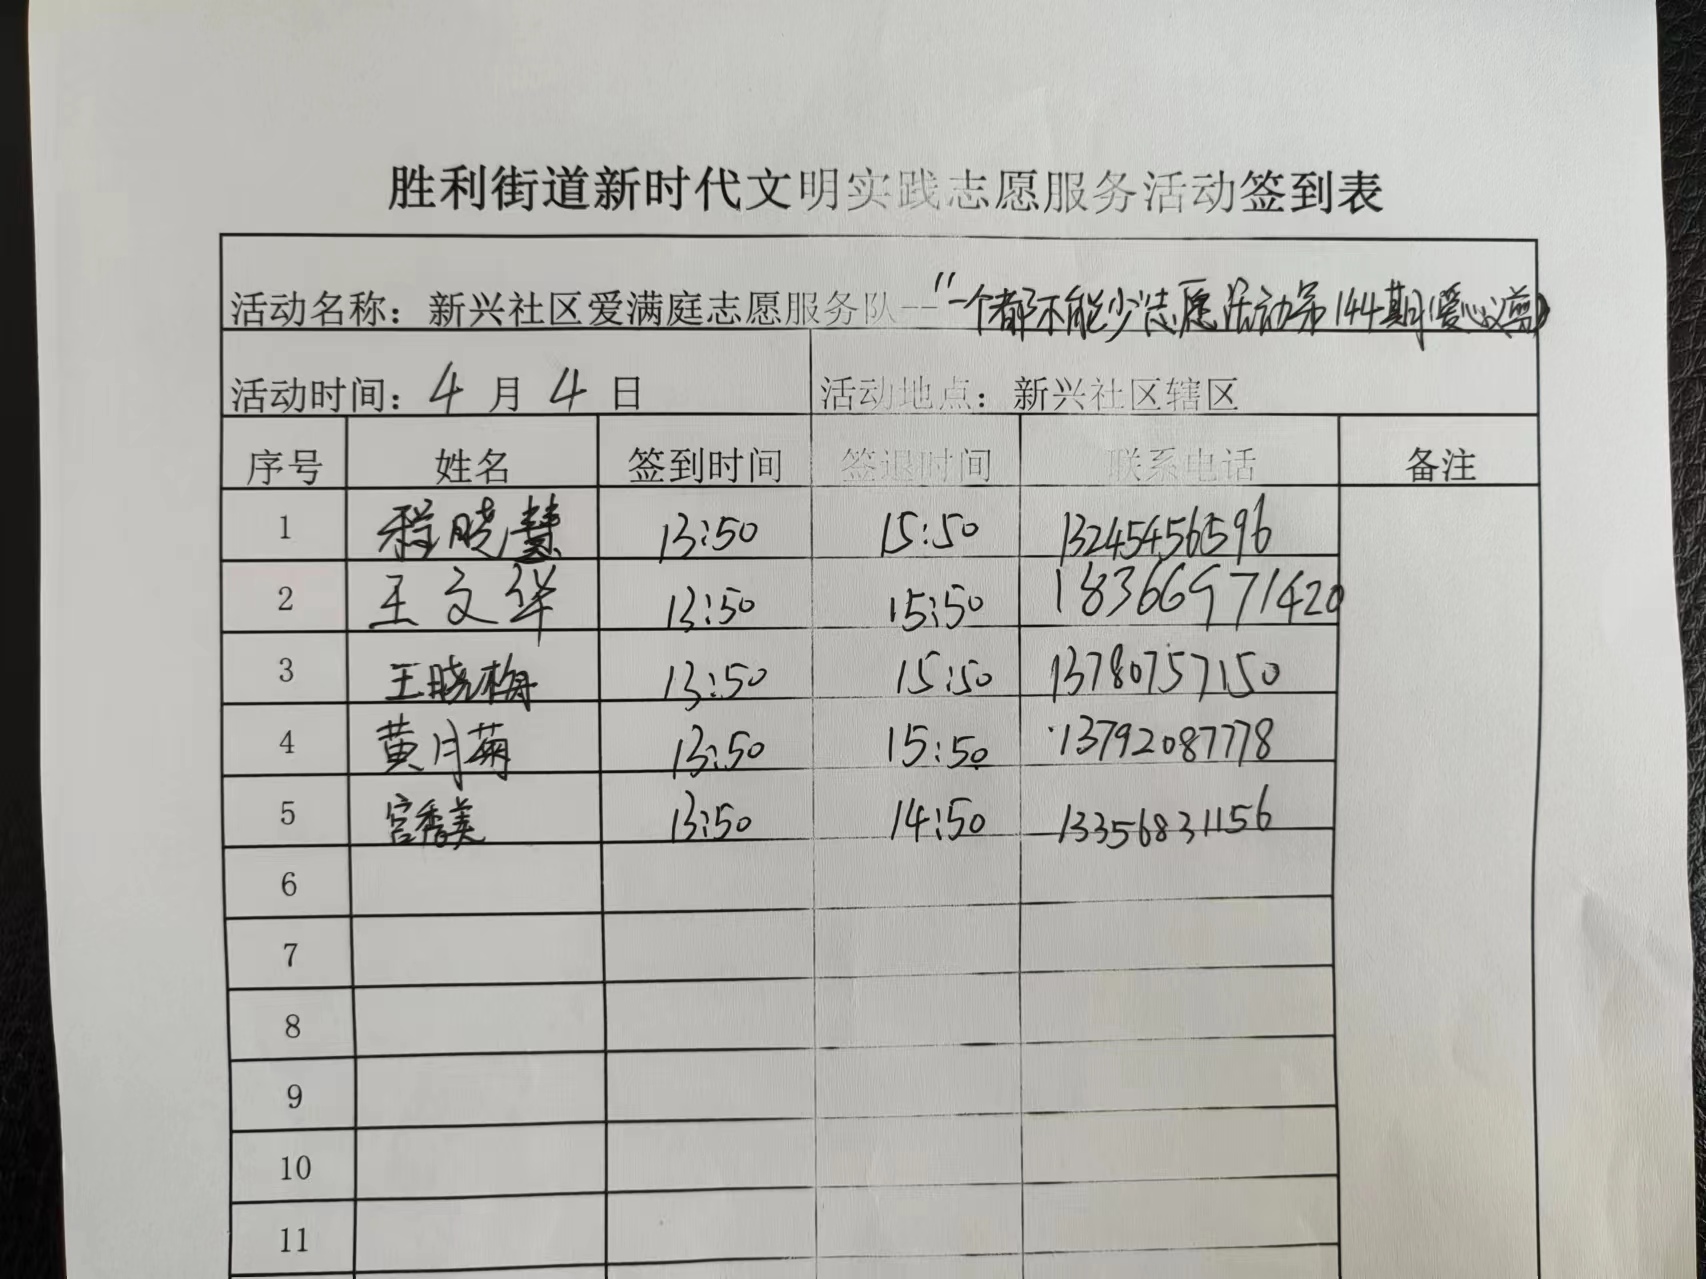 胜利街道新时代文明实践志愿服务活动签到表
活动名称：新兴社区爱满庭志愿服务队--"一个都不能少志愿活动第144期(爱心义剪)
活动时间：4 月 4 日 活动地点：新兴社区辖区
序号 姓名 签到时间 签退时间 联系电话 备注
1 程晓慧 13:50 15:50 13245456596
2 王文华 13:50 15:50 18366971420
3 王晓梅 13:50 15:50 13780757150
4 黄月菊 13:50 15:50 13792087778
5 宫秀美 13:50 14:50 13356831156
6
7
8
9
10
11